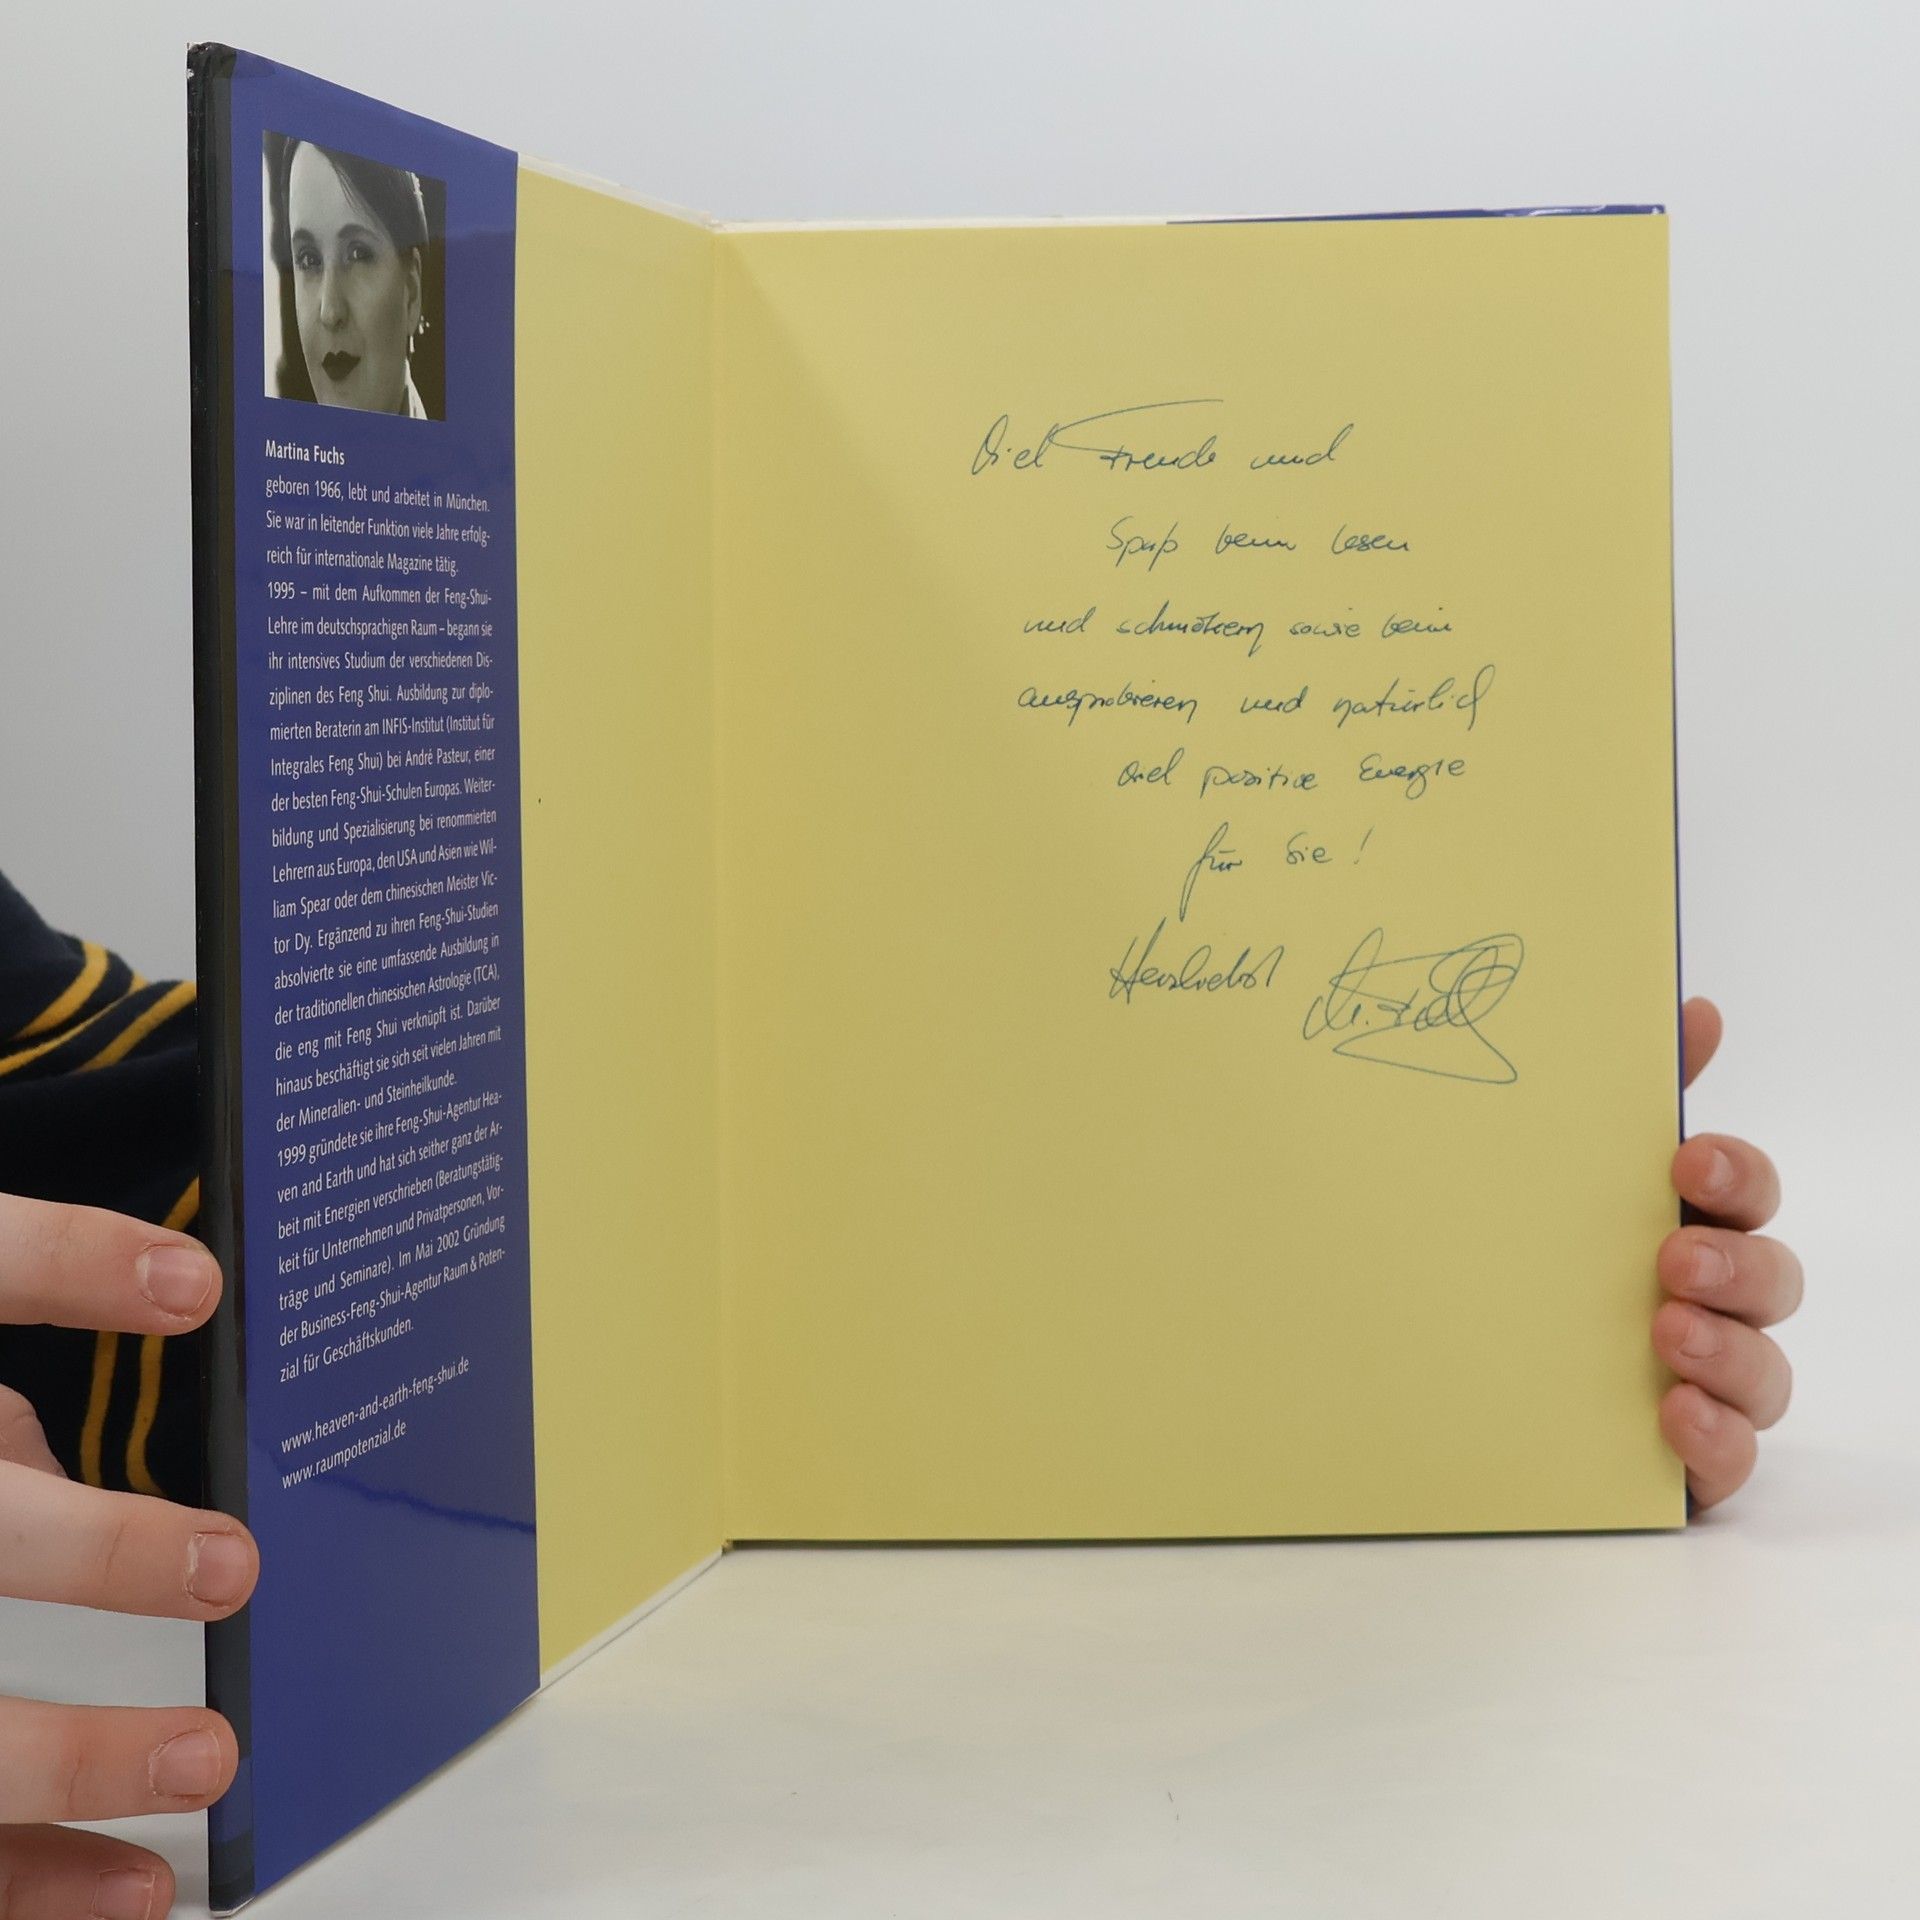 Martina Fuchs
geboren 1966, lebt und arbeitet in München.
Sie war in leitender Funktion viele Jahre erfolg-
reich für internationale Magazine tätig.
1995 – mit dem Aufkommen der Feng-Shui-
Lehre im deutschsprachigen Raum – begann sie
ihr intensives Studium der verschiedenen Dis-
ziplinen des Feng Shui. Ausbildung zur diplo-
mierten Beraterin am INFIS-Institut (Institut für
Integrales Feng Shui) bei André Pasteur, einer
der besten Feng-Shui-Schulen Europas. Weiter-
bildung und Spezialisierung bei renommierten
Lehrern aus Europa, den USA und Asien wie Wil-
liam Spear oder dem chinesischen Meister Vic-
tor Dy. Ergänzend zu ihren Feng-Shui-Studien
absolvierte sie eine umfassende Ausbildung in
der traditionellen chinesischen Astrologie (TCA),
die eng mit Feng Shui verknüpft ist. Darüber
hinaus beschäftigt sie sich seit vielen Jahren mit
der Mineralien- und Steinheilkunde.
1999 gründete sie ihre Feng-Shui-Agentur Hea-
ven and Earth und hat sich seither ganz der Ar-
beit mit Energien verschrieben (Beratungstätig-
keit für Unternehmen und Privatpersonen, Vor-
träge und Seminare). Im Mai 2002 Gründung
der Business-Feng-Shui-Agentur Raum & Poten-
zial für Geschäftskunden.
www.heaven-and-earth-feng-shui.de
www.raumpotenzial.de
Viel Freude und
Spaß beim lesen
und schmökern sowie beim
ausprobieren und natürlich
viel positive Energie
für Sie!
Herzlichst